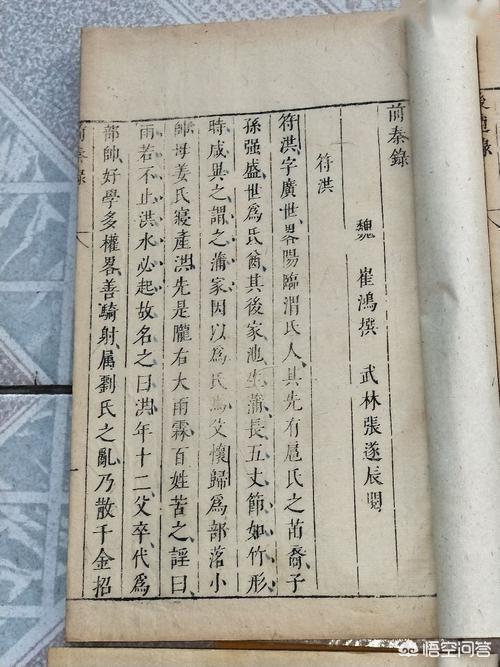 前秦錄
魏 崔鴻撰 武林張遂辰閱
符洪
符洪字廣世畧陽臨渭氐人其先有扈氏之苗裔子
孫强盛世爲氐酋其後家池生蒲長五丈節如竹形
時咸異之謂之蒲家因以爲氏焉父懷歸爲部落小
帥母姜氏寢產洪先是隴右大雨霖百姓苦之謡曰
雨若不止洪水必起故名之曰洪年十二父卒代爲
部帥好學多權畧善騎射属劉氏之亂乃散千金招
前秦錄
悟空问答